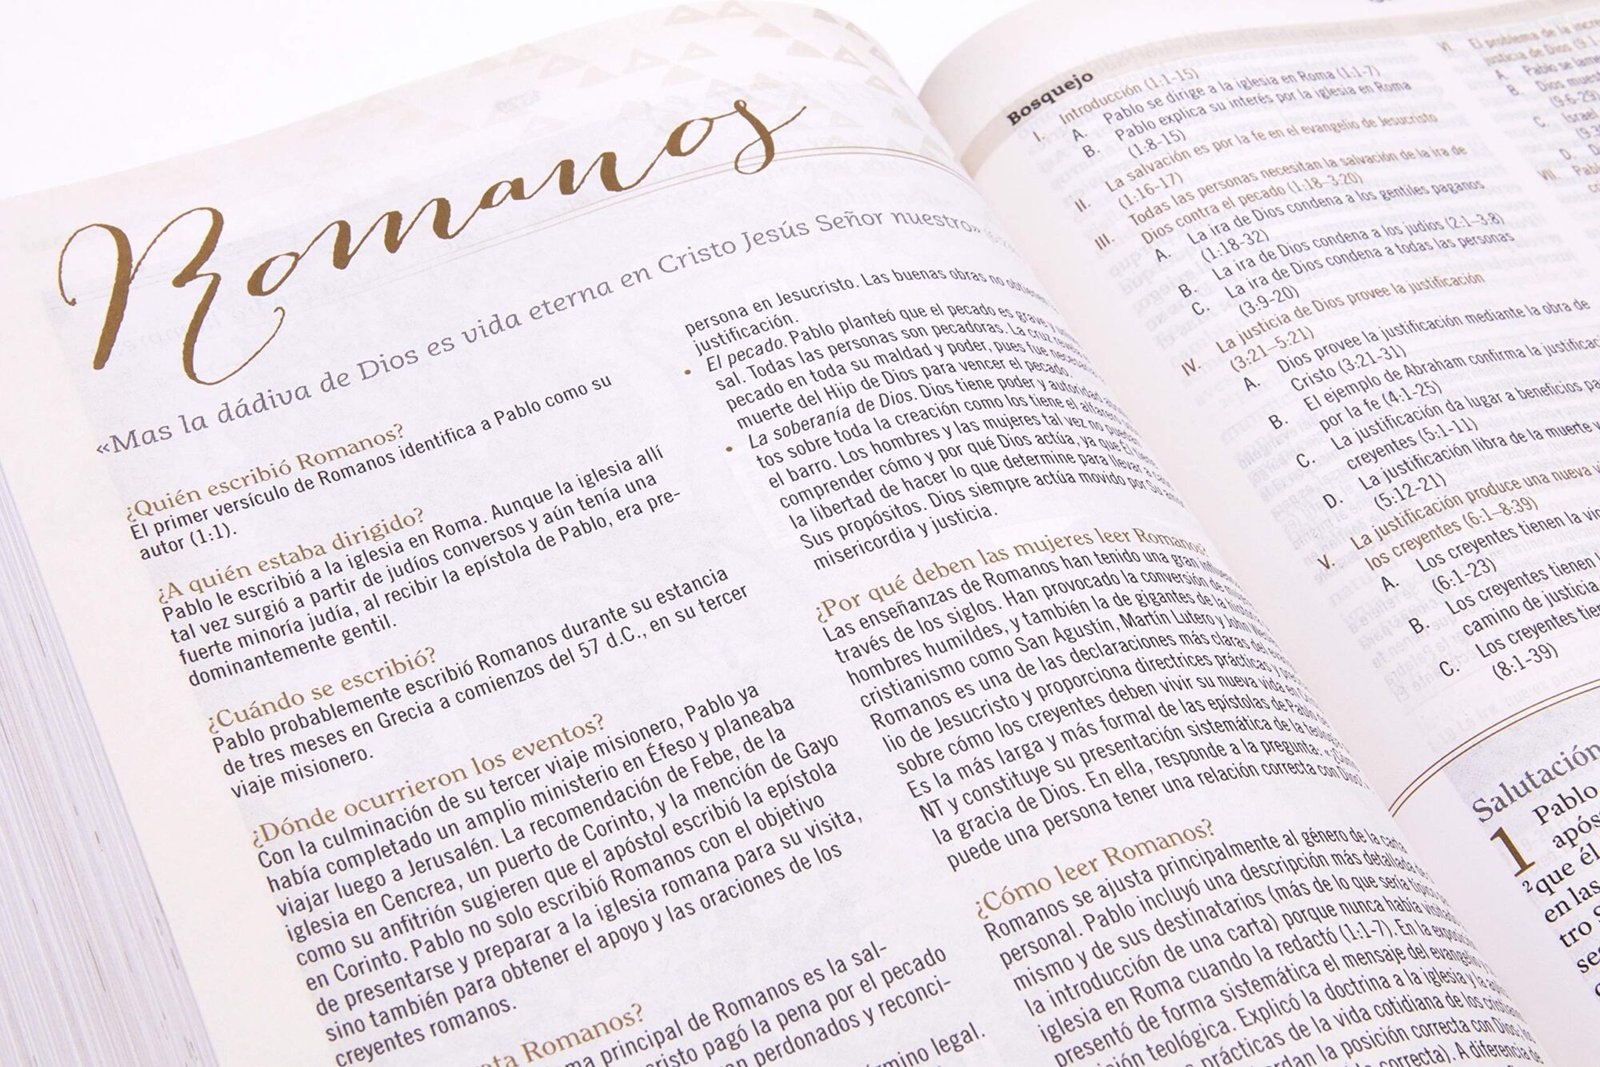 Romanos
«Mas la dádiva de Dios es vida eterna en Cristo Jesús Señor nuestro»
¿Quién escribió Romanos?
El primer versículo de Romanos identifica a Pablo como su
autor (1:1).
¿A quién estaba dirigido?
Pablo le escribió a la iglesia en Roma. Aunque la iglesia allí
tal vez surgió a partir de judíos conversos y aún tenía una
fuerte minoría judía, al recibir la epístola de Pablo, era pre-
dominantemente gentil.
¿Cuándo se escribió?
Pablo probablemente escribió Romanos durante su estancia
de tres meses en Grecia a comienzos del 57 d.C., en su tercer
viaje misionero.
¿Dónde ocurrieron los eventos?
Con la culminación de su tercer viaje misionero, Pablo ya
había completado un amplio ministerio en Éfeso y planeaba
viajar luego a Jerusalén. La recomendación de Febe, de la
iglesia en Cencrea, un puerto de Corinto, y la mención de Gayo
como su anfitrión sugieren que el apóstol escribió la epístola
en Corinto. Pablo no solo escribió Romanos con el objetivo
de presentarse y preparar a la iglesia romana para su visita,
sino también para obtener el apoyo y las oraciones de los
creyentes romanos.
Romanos?
principal de Romanos es la sal-
pagó la pena por el pecado
perdonados y reconci-
legal.
persona en Jesucristo. Las buenas obras no
justificación.
• El pecado. Pablo planteó que el pecado es grave y
sal. Todas las personas son pecadoras. La cruz
pecado en toda su maldad y poder, pues fue
muerte del Hijo de Dios para vencer el pecado.
• La soberanía de Dios. Dios tiene poder y autoridad
tos sobre toda la creación como los tiene el alfarero
el barro. Los hombres y las mujeres tal vez no
comprender cómo y por qué Dios actúa, ya que Él tiene
la libertad de hacer lo que determine para llevar a
Sus propósitos. Dios siempre actúa movido por Su
misericordia y justicia.
¿Por qué deben las mujeres leer Romanos?
Las enseñanzas de Romanos han tenido una gran
través de los siglos. Han provocado la conversión de
hombres humildes, y también la de gigantes de la
cristianismo como San Agustín, Martín Lutero y John
Romanos es una de las declaraciones más claras del
lio de Jesucristo y proporciona directrices prácticas y
sobre cómo los creyentes deben vivir su nueva vida en
Es la más larga y más formal de las epístolas de Pablo
NT y constituye su presentación sistemática de la
la gracia de Dios. En ella, responde a la pregunta:
puede una persona tener una relación correcta con Dios?
¿Cómo leer Romanos?
Romanos se ajusta principalmente al género de la carta
personal. Pablo incluyó una descripción más detallada
mismo y de sus destinatarios (más de lo que sería
la introducción de una carta) porque nunca había
iglesia en Roma cuando la redactó (1:1-7). En la
presentó de forma sistemática el mensaje del
teológica. Explicó la doctrina a la iglesia y
prácticas de la vida cotidiana de los
la posición correcta con Dios
correcta). A diferencia de
Bosquejo
I. Introducción (1:1-15)
A. Pablo se dirige a la iglesia en Roma (1:1-7)
B. Pablo explica su interés por la iglesia en Roma
(1:8-15)
II. La salvación es por la fe en el evangelio de Jesucristo
(1:16-17)
III. Todas las personas necesitan la salvación de la ira de
Dios contra el pecado (1:18–3:20)
A. La ira de Dios condena a los gentiles paganos
(1:18-32)
B. La ira de Dios condena a los judíos (2:1–3:8)
C. La ira de Dios condena a todas las personas
(3:9-20)
IV. La justicia de Dios provee la justificación
(3:21–5:21)
A. Dios provee la justificación mediante la obra de
Cristo (3:21-31)
B. El ejemplo de Abraham confirma la
por la fe (4:1-25)
C. La justificación da lugar a beneficios
creyentes (5:1-11)
D. La justificación libra de la muerte
(5:12-21)
V. La justificación produce una nueva
los creyentes (6:1–8:39)
A. Los creyentes tienen la
(6:1-23)
B. Los creyentes tienen
camino de justicia
C. Los creyentes
(8:1-39)
VI. El problema de la
justicia de Dios
A. Pablo se
B. Dios
(9:6-29)
C. Israel
D.
VII.
Salutación
1 Pablo
2 que él
en las
tro